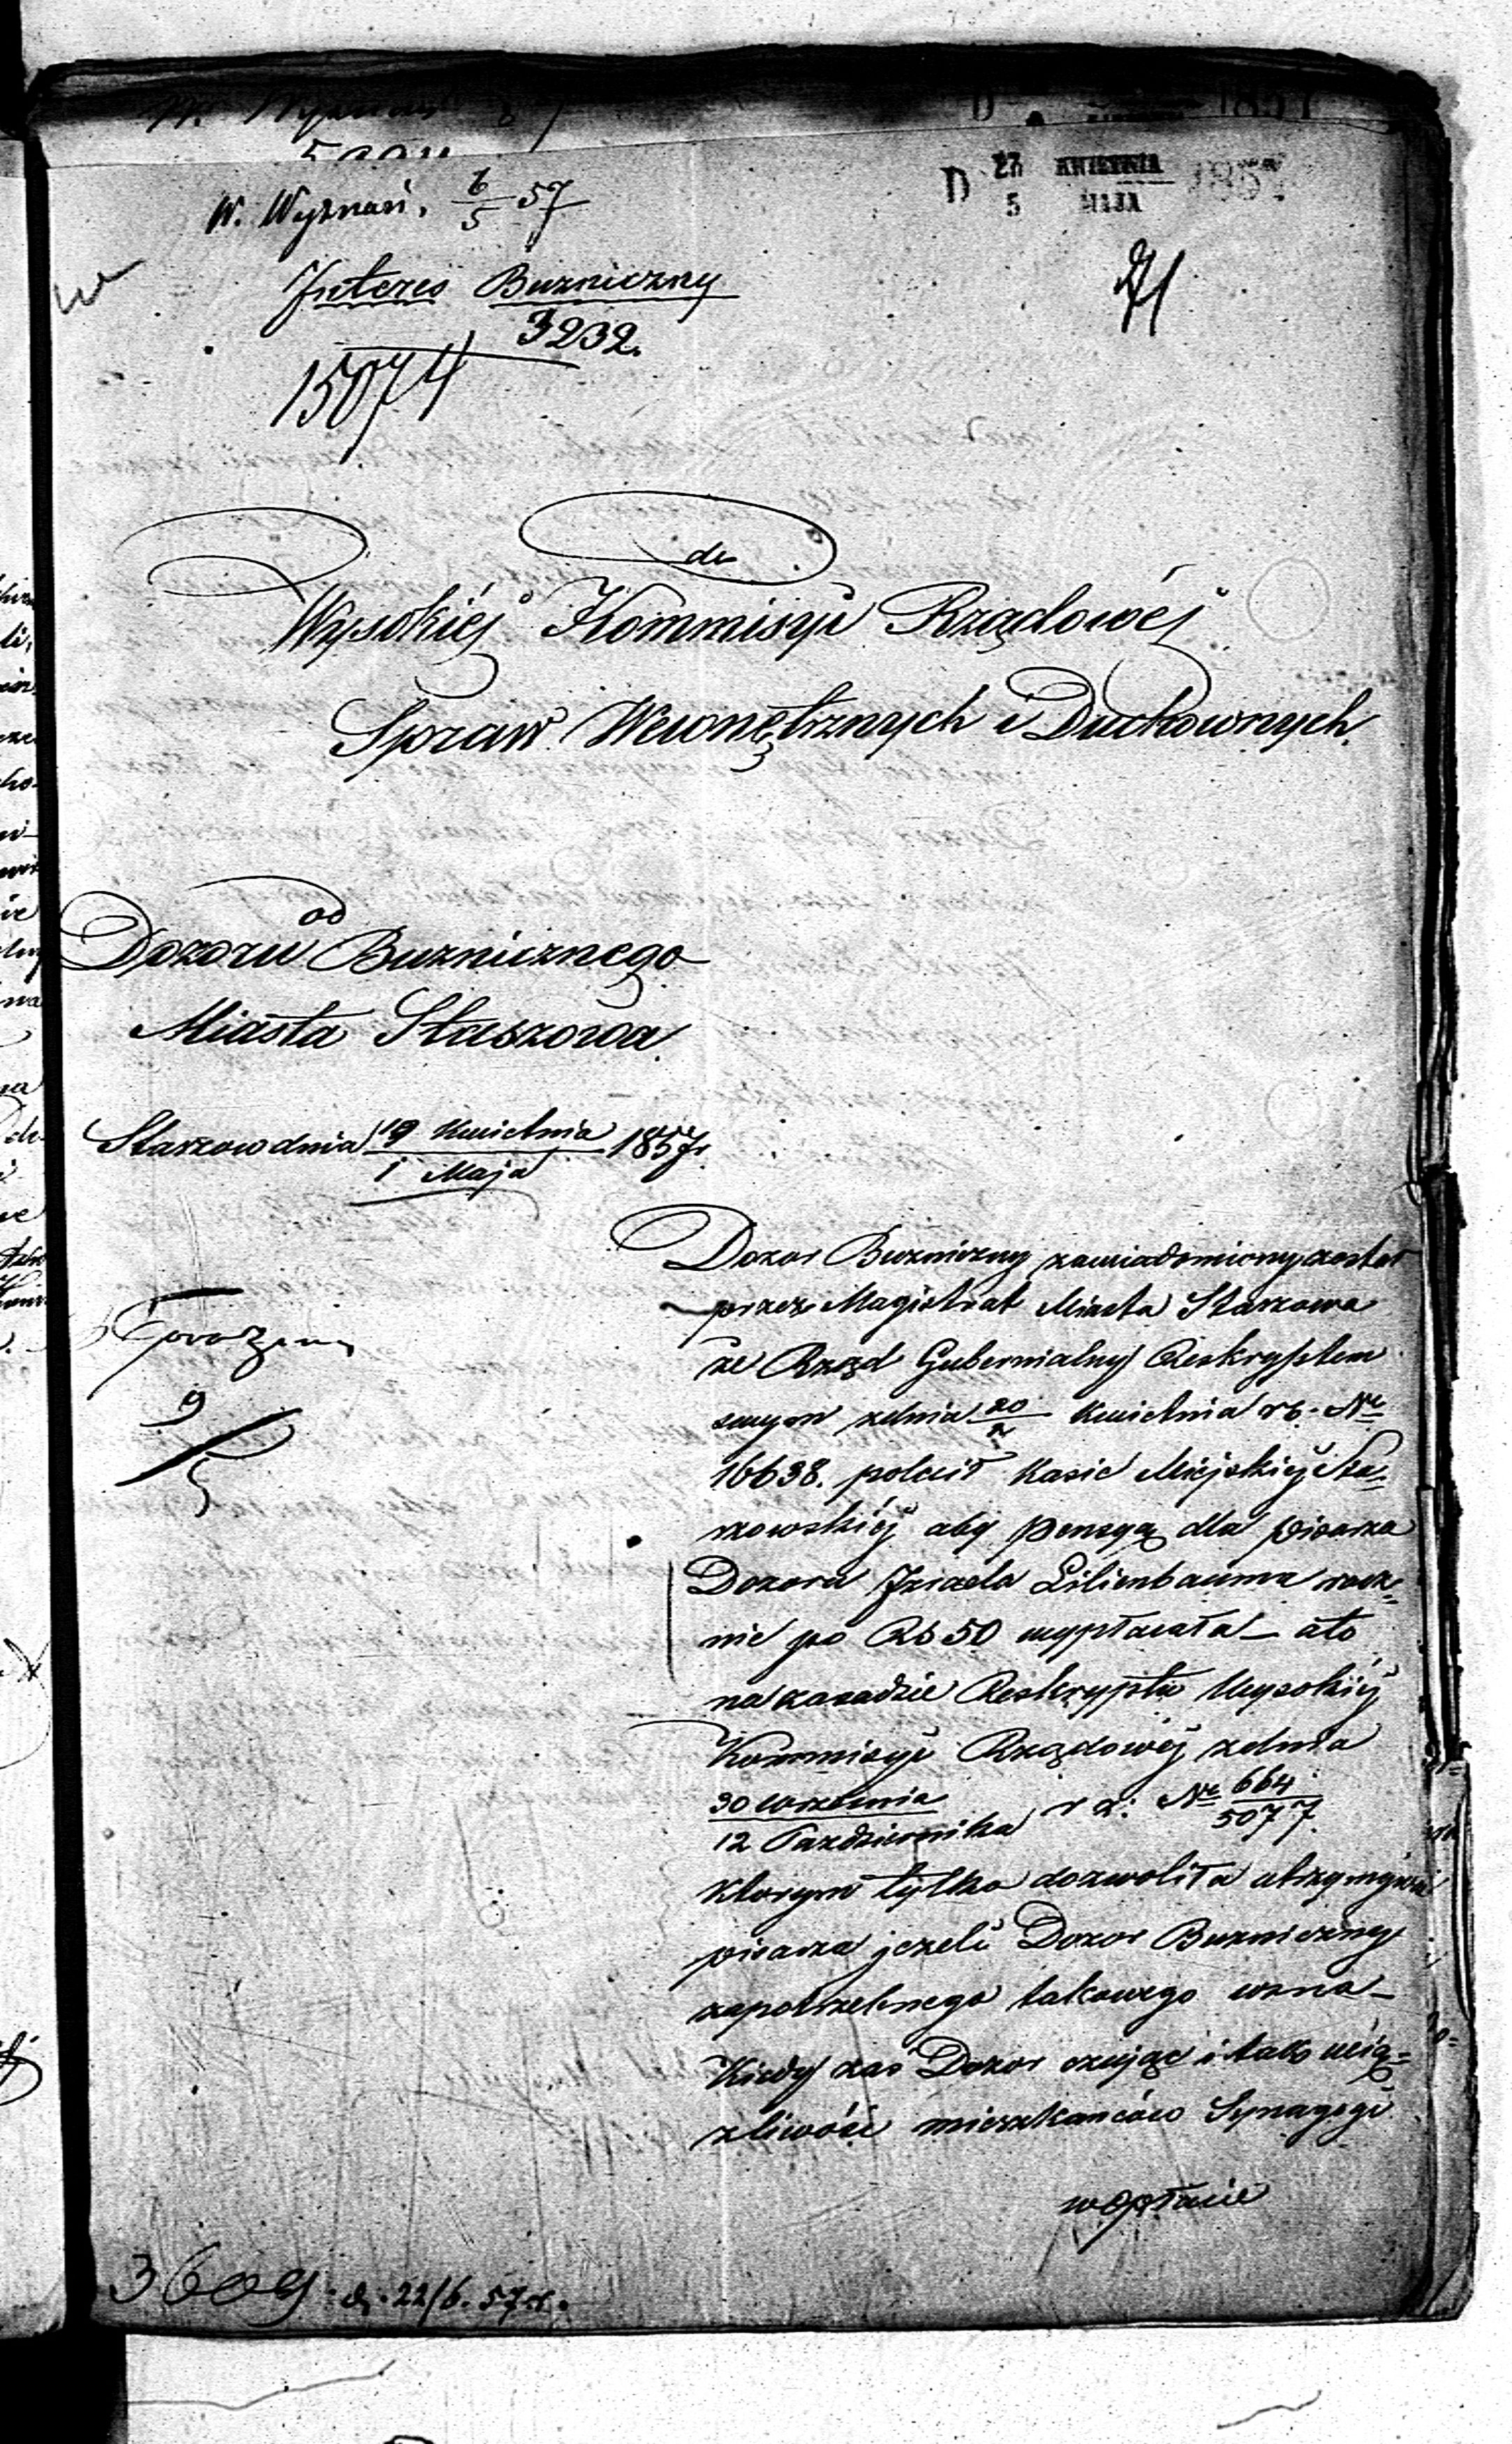 W. Wyznań. 6/5 57
D 23 KWIETNIA 1857
5 MAJA
Interes Buzniczny
3232.
15074
71
do
Wysokiéj Kommisyi Rządowéj
Spraw Wewnętrznych i Duchownych
od
Dozoru Buznicznego
Miasta Staszowa
Staszow dnia 19 Kwietnia 1857r
1 Maja
Dozor Buzniczny zawiadomiony zostar
przez Magistrat Miasta Staszowa
ze Rząd Gubernialny Reskryptem
swym zdnia 20 Kwietnia rb. Nr
16638. polecił Kasie Miejskiéj Sta=
szowskiéj aby pensyą dla pisarza
Dozoru Izraela Lilienbauma rocz=
nie po Rs 50 wypłacała — a to
na zasadzie Reskryptu Wysokiéj
Kommisyi Rządowéj zdnia
30 Września
12 Pazdziernika r z: Nr 664/5077
Ktorym tylko dozwoliła utrzymywać
pisarza jezeli Dozor Buzniczny
zapotrzebnego takowego uzna —
Kiedy zas Dozor czując i tak ucią=
zliwość mieszkańców Synagogi
w opłacie
9
5
3609 d. 22/6. 57 r.